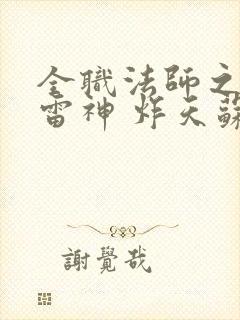 全職法師之
雷神 炸天蘇
謝覺哉